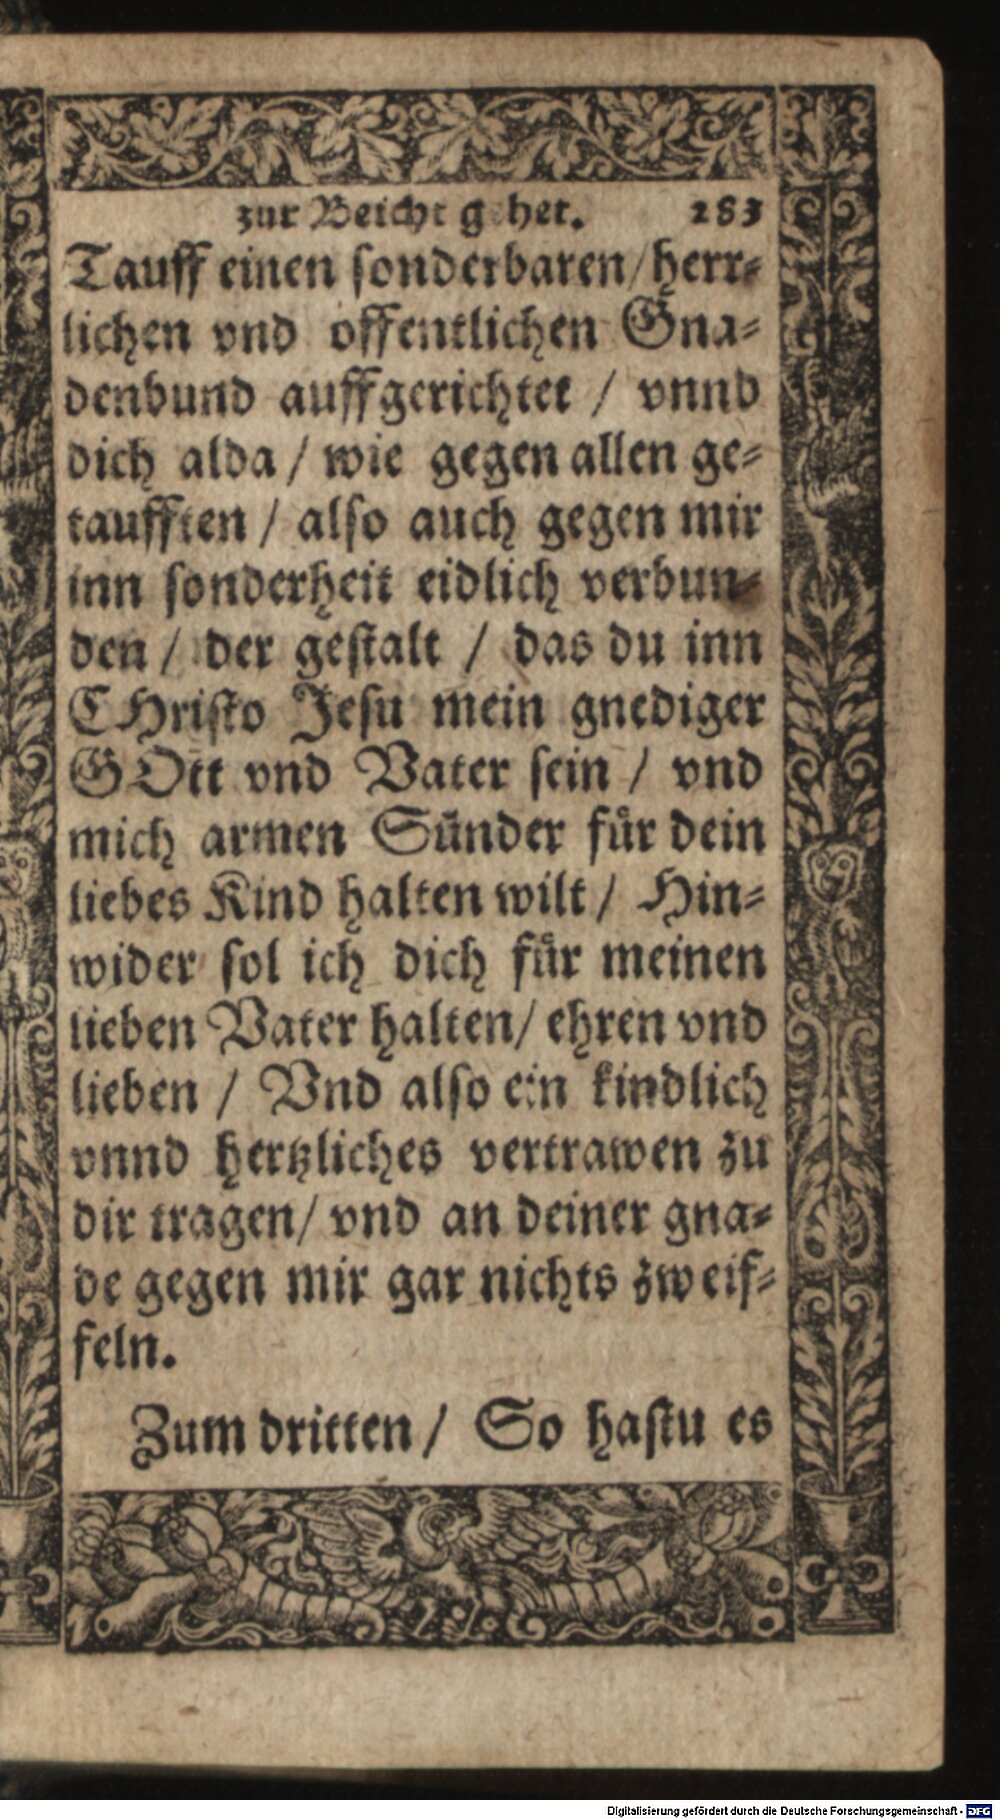 zur Beicht gehet. 283
Tauff einen ſonderbaren/ herr⸗
lichen vnd offentlichen Gna⸗
denbund auffgerichtet / vnnd
dich alda / wie gegen allen ge⸗
taufften / alſo auch gegen mir
inn ſonderheit eidlich verbun⸗
den / der geſtalt / das du inn
CHriſto Jeſu mein gnediger
GOtt vnd Vater ſein / vnd
mich armen Sünder fuͤr dein
liebes Kind halten wilt / Hin⸗
wider ſol ich dich fuͤr meinen
lieben Vater halten/ ehren vnd
lieben / Vnd alſo ein kindlich
vnnd hertzliches vertrawen zu
dir tragen/ vnd an deiner gna⸗
de gegen mir gar nichts zweif⸗
feln.
Zum dritten / So haſtu es
Digitalisierung gefördert durch die Deutsche Forschungsgemeinschaft - DFG